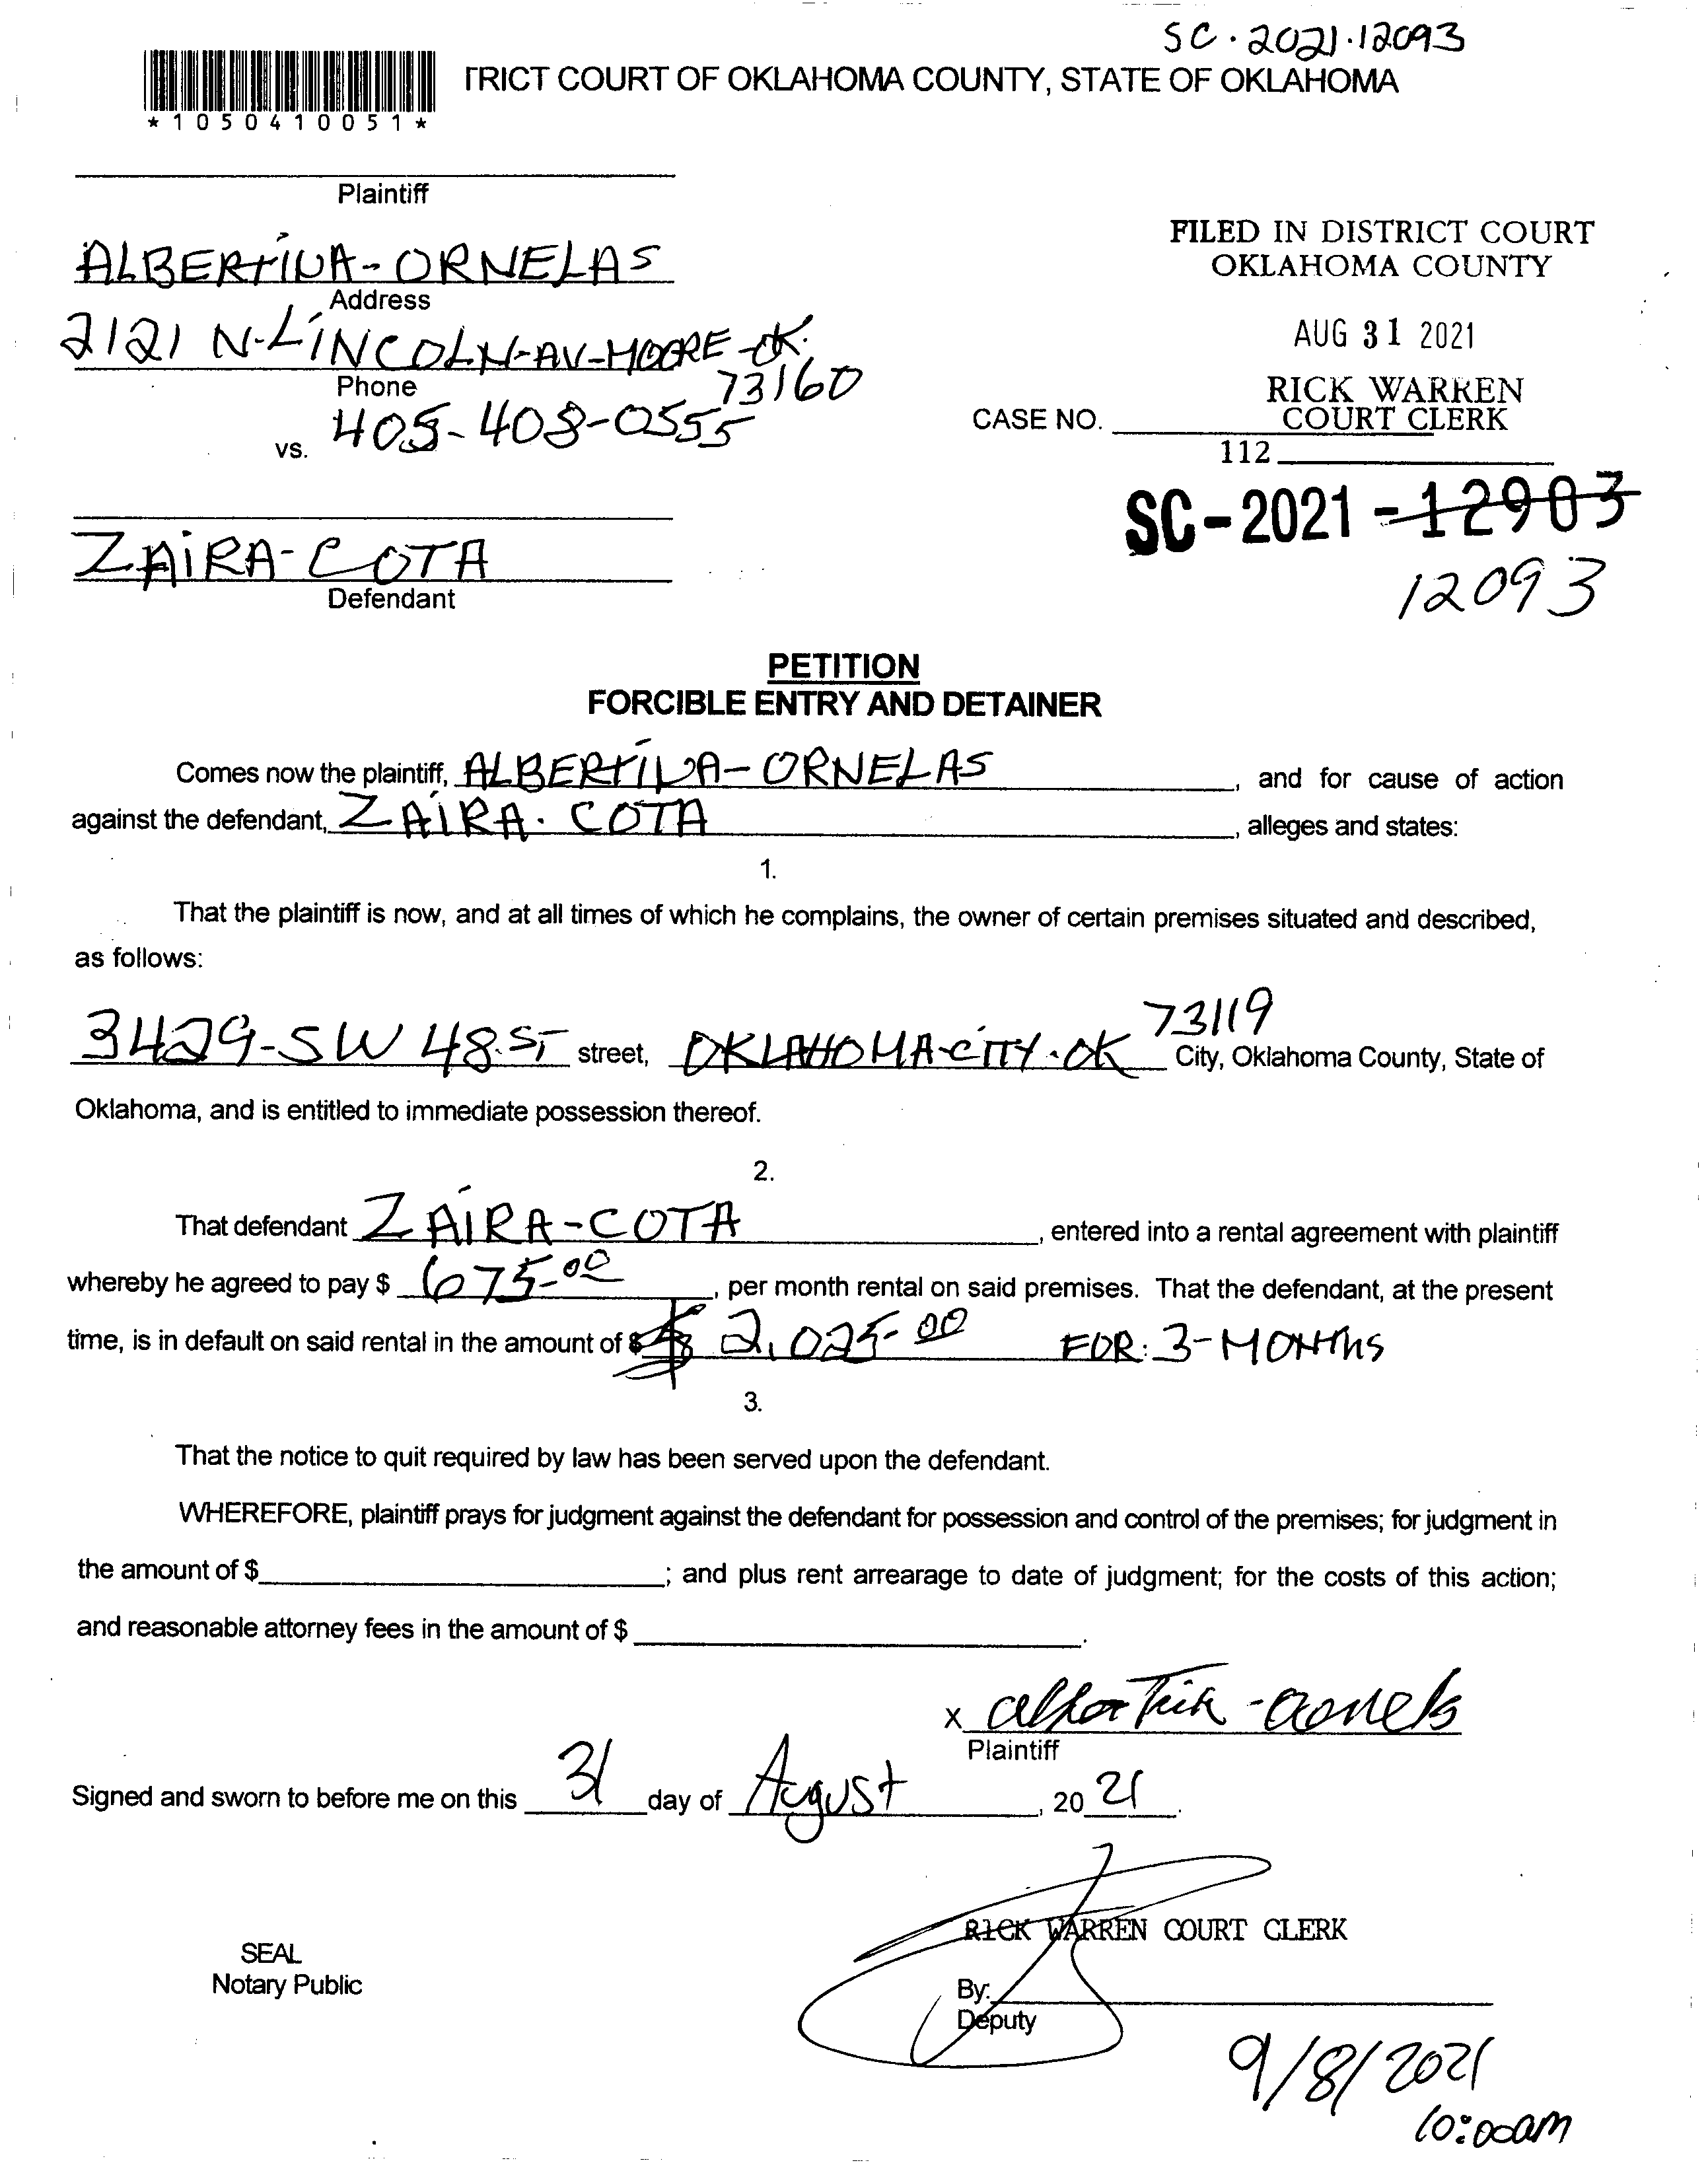 SC·2021·12093
TRICT COURT OF OKLAHOMA COUNTY, STATE OF OKLAHOMA
*1050410051*
Plaintiff
ALBERTINA-ORNELAS
Address
2121 N-LINCOLN-AV-MOORE-OK.
73160
Phone
405-408-0555
vs.
FILED IN DISTRICT COURT
OKLAHOMA COUNTY
AUG 31 2021
RICK WARREN
COURT CLERK
CASE NO.
112
SC-2021-12903
12093
ZAIRA-COTA
Defendant
PETITION
FORCIBLE ENTRY AND DETAINER
Comes now the plaintiff, ALBERTINA-ORNELAS, and for cause of action
against the defendant, ZAIRA. COTA, alleges and states:
1.
That the plaintiff is now, and at all times of which he complains, the owner of certain premises situated and described,
as follows:
3429-SW 48.ST street, OKLAHOMA-CITY.OK 73119 City, Oklahoma County, State of
Oklahoma, and is entitled to immediate possession thereof.
2.
That defendant ZAIRA-COTA, entered into a rental agreement with plaintiff
whereby he agreed to pay $ 675-00, per month rental on said premises. That the defendant, at the present
time, is in default on said rental in the amount of $ 2,025-00 FOR: 3-MONTHS
3.
That the notice to quit required by law has been served upon the defendant.
WHEREFORE, plaintiff prays for judgment against the defendant for possession and control of the premises; for judgment in
the amount of $; and plus rent arrearage to date of judgment; for the costs of this action;
and reasonable attorney fees in the amount of $.
x
Plaintiff
Signed and sworn to before me on this 31 day of Augusst, 20 21.
RICK WARREN COURT CLERK
SEAL
Notary Public
By:
Deputy
9/8/2021
10:00am